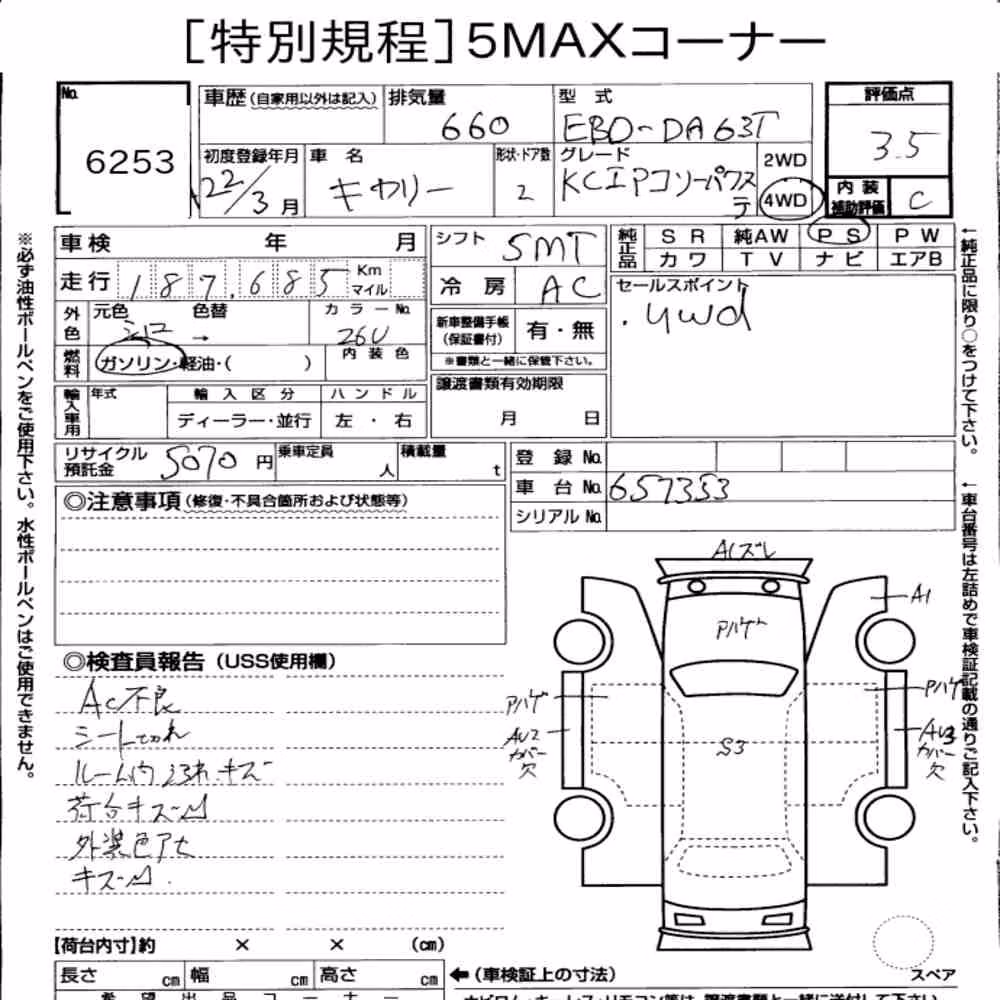 [特別規程]5MAXコーナー
No. 6253
車歴(自家用以外は記入) 排気量 660
型式 EBD-DA63T
評価点 3.5
初度登録年月 22/3月
車名 キャリー
形状・ドア数 2
グレード KCエアコンパワステ
2WD
4WD
内装補助評価 C
車検 年 月
走行 187,685 Km マイル
外色 元色 シロ 色替 →
カラーNo. 26U
燃料 ガソリン・軽油・( )
内装色
輸入車用 年式 輸入区分 ハンドル
ディーラー・並行 左・右
シフト 5MT
冷房 AC
新車整備手帳(保証書付) 有・無
※書類と一緒に保管下さい。
譲渡書類有効期限
月 日
純正品 SR 純AW PS PW
カワ TV ナビ エアB
セールスポイント
・4wd
リサイクル預託金 5070円 乗車定員 人 積載量 t
登録No.
車台No. 657353
シリアルNo.
◎注意事項(修復・不具合箇所および状態等)
◎検査員報告(USS使用欄)
AC不良
シート切れ
ルーム内ヨゴれ、キズ
荷台キズ凹
外装色アセ
キズ凹.
A1ズレ
A1
Pハゲ
Pハゲ
AU2
カバー
欠
S3
Pハゲ
AU3
カバー
欠
【荷台内寸】約 × × (cm)
長さ cm 幅 cm 高さ cm ←(車検証上の寸法)
スペア
希望出品コーナー
※必ず油性ボールペンをご使用下さい。水性ボールペンはご使用できません。
←純正品に限り○をつけて下さい。
←車台番号は左詰めで車検証記載の通りご記入下さい。